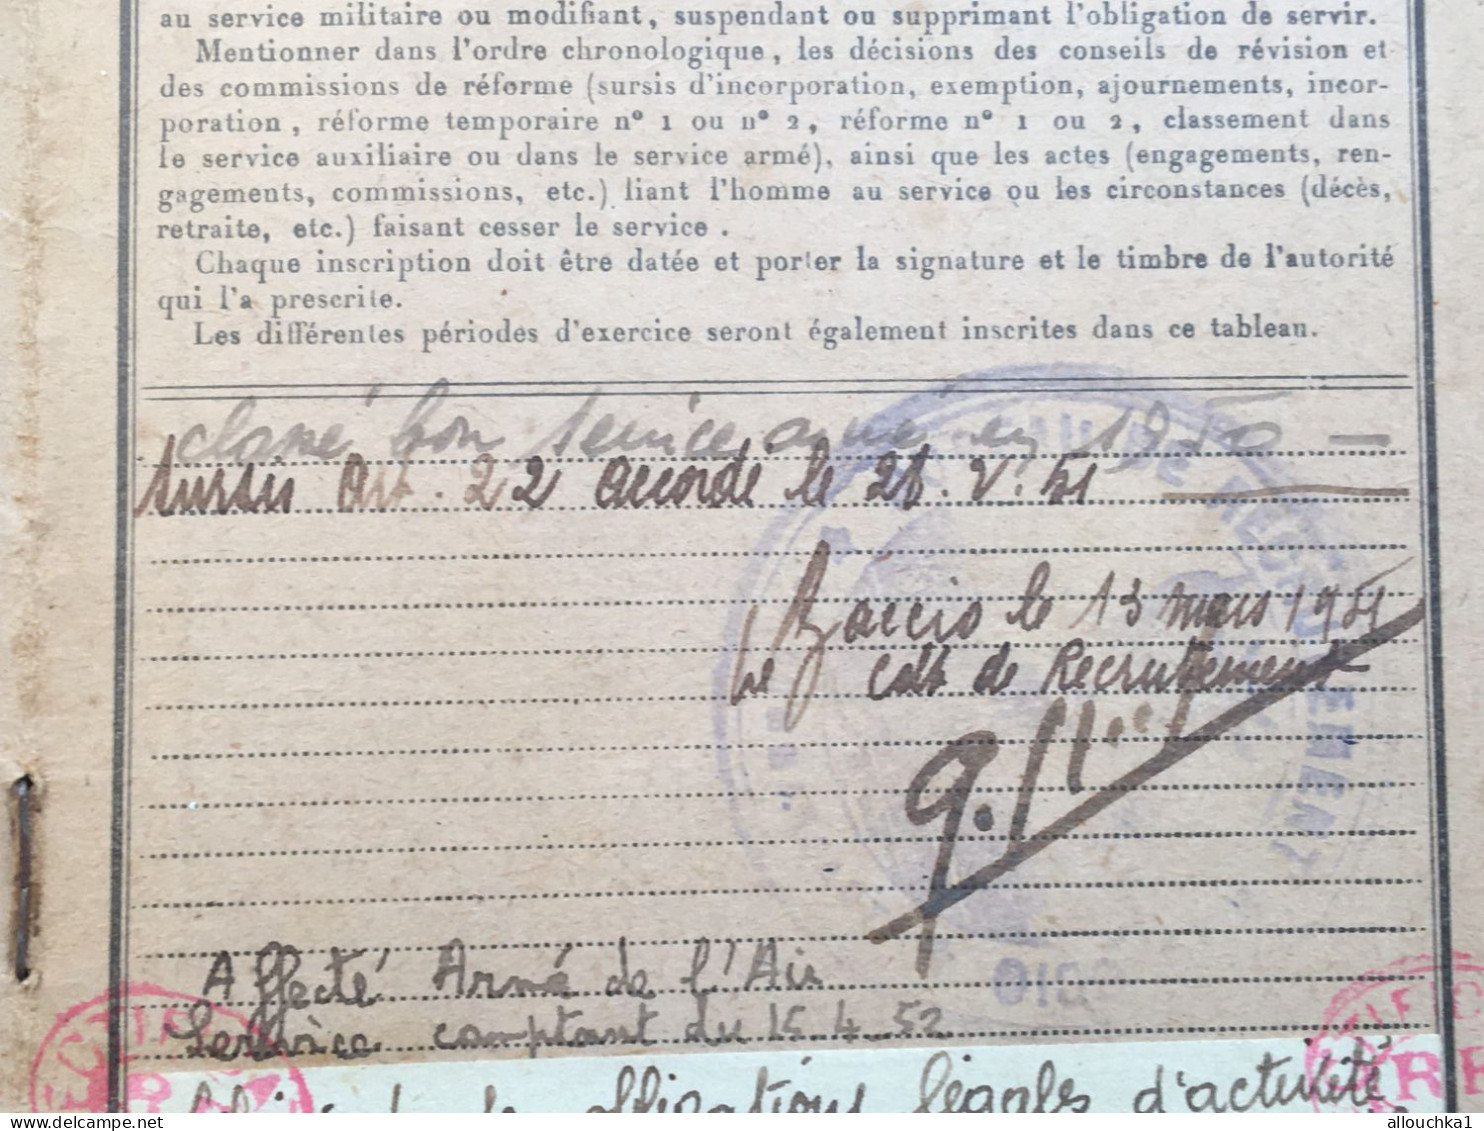 au service militaire ou modifiant, suspendant ou supprimant l'obligation de servir.
Mentionner dans l'ordre chronologique, les décisions des conseils de révision et
des commissions de réforme (sursis d'incorporation, exemption, ajournements, incor-
poration, réforme temporaire n° 1 ou n° 2, réforme n° 1 ou 2, classement dans
le service auxiliaire ou dans le service armé), ainsi que les actes (engagements, ren-
gagements, commissions, etc.) liant l'homme au service ou les circonstances (décès,
retraite, etc.) faisant cesser le service.
Chaque inscription doit être datée et porter la signature et le timbre de l'autorité
qui l'a prescrite.
Les différentes périodes d'exercice seront également inscrites dans ce tableau.
classé bon service armé en 1950 —
sursis Art. 22 accordé le 28.V.51
le 13 mars 1951
Le Cdt de Recrutement
Affecté Armé de l'Air
Service comptant du 15 4 52
obligations légales d'activité
DE RECRUTEMENT
allouchka1